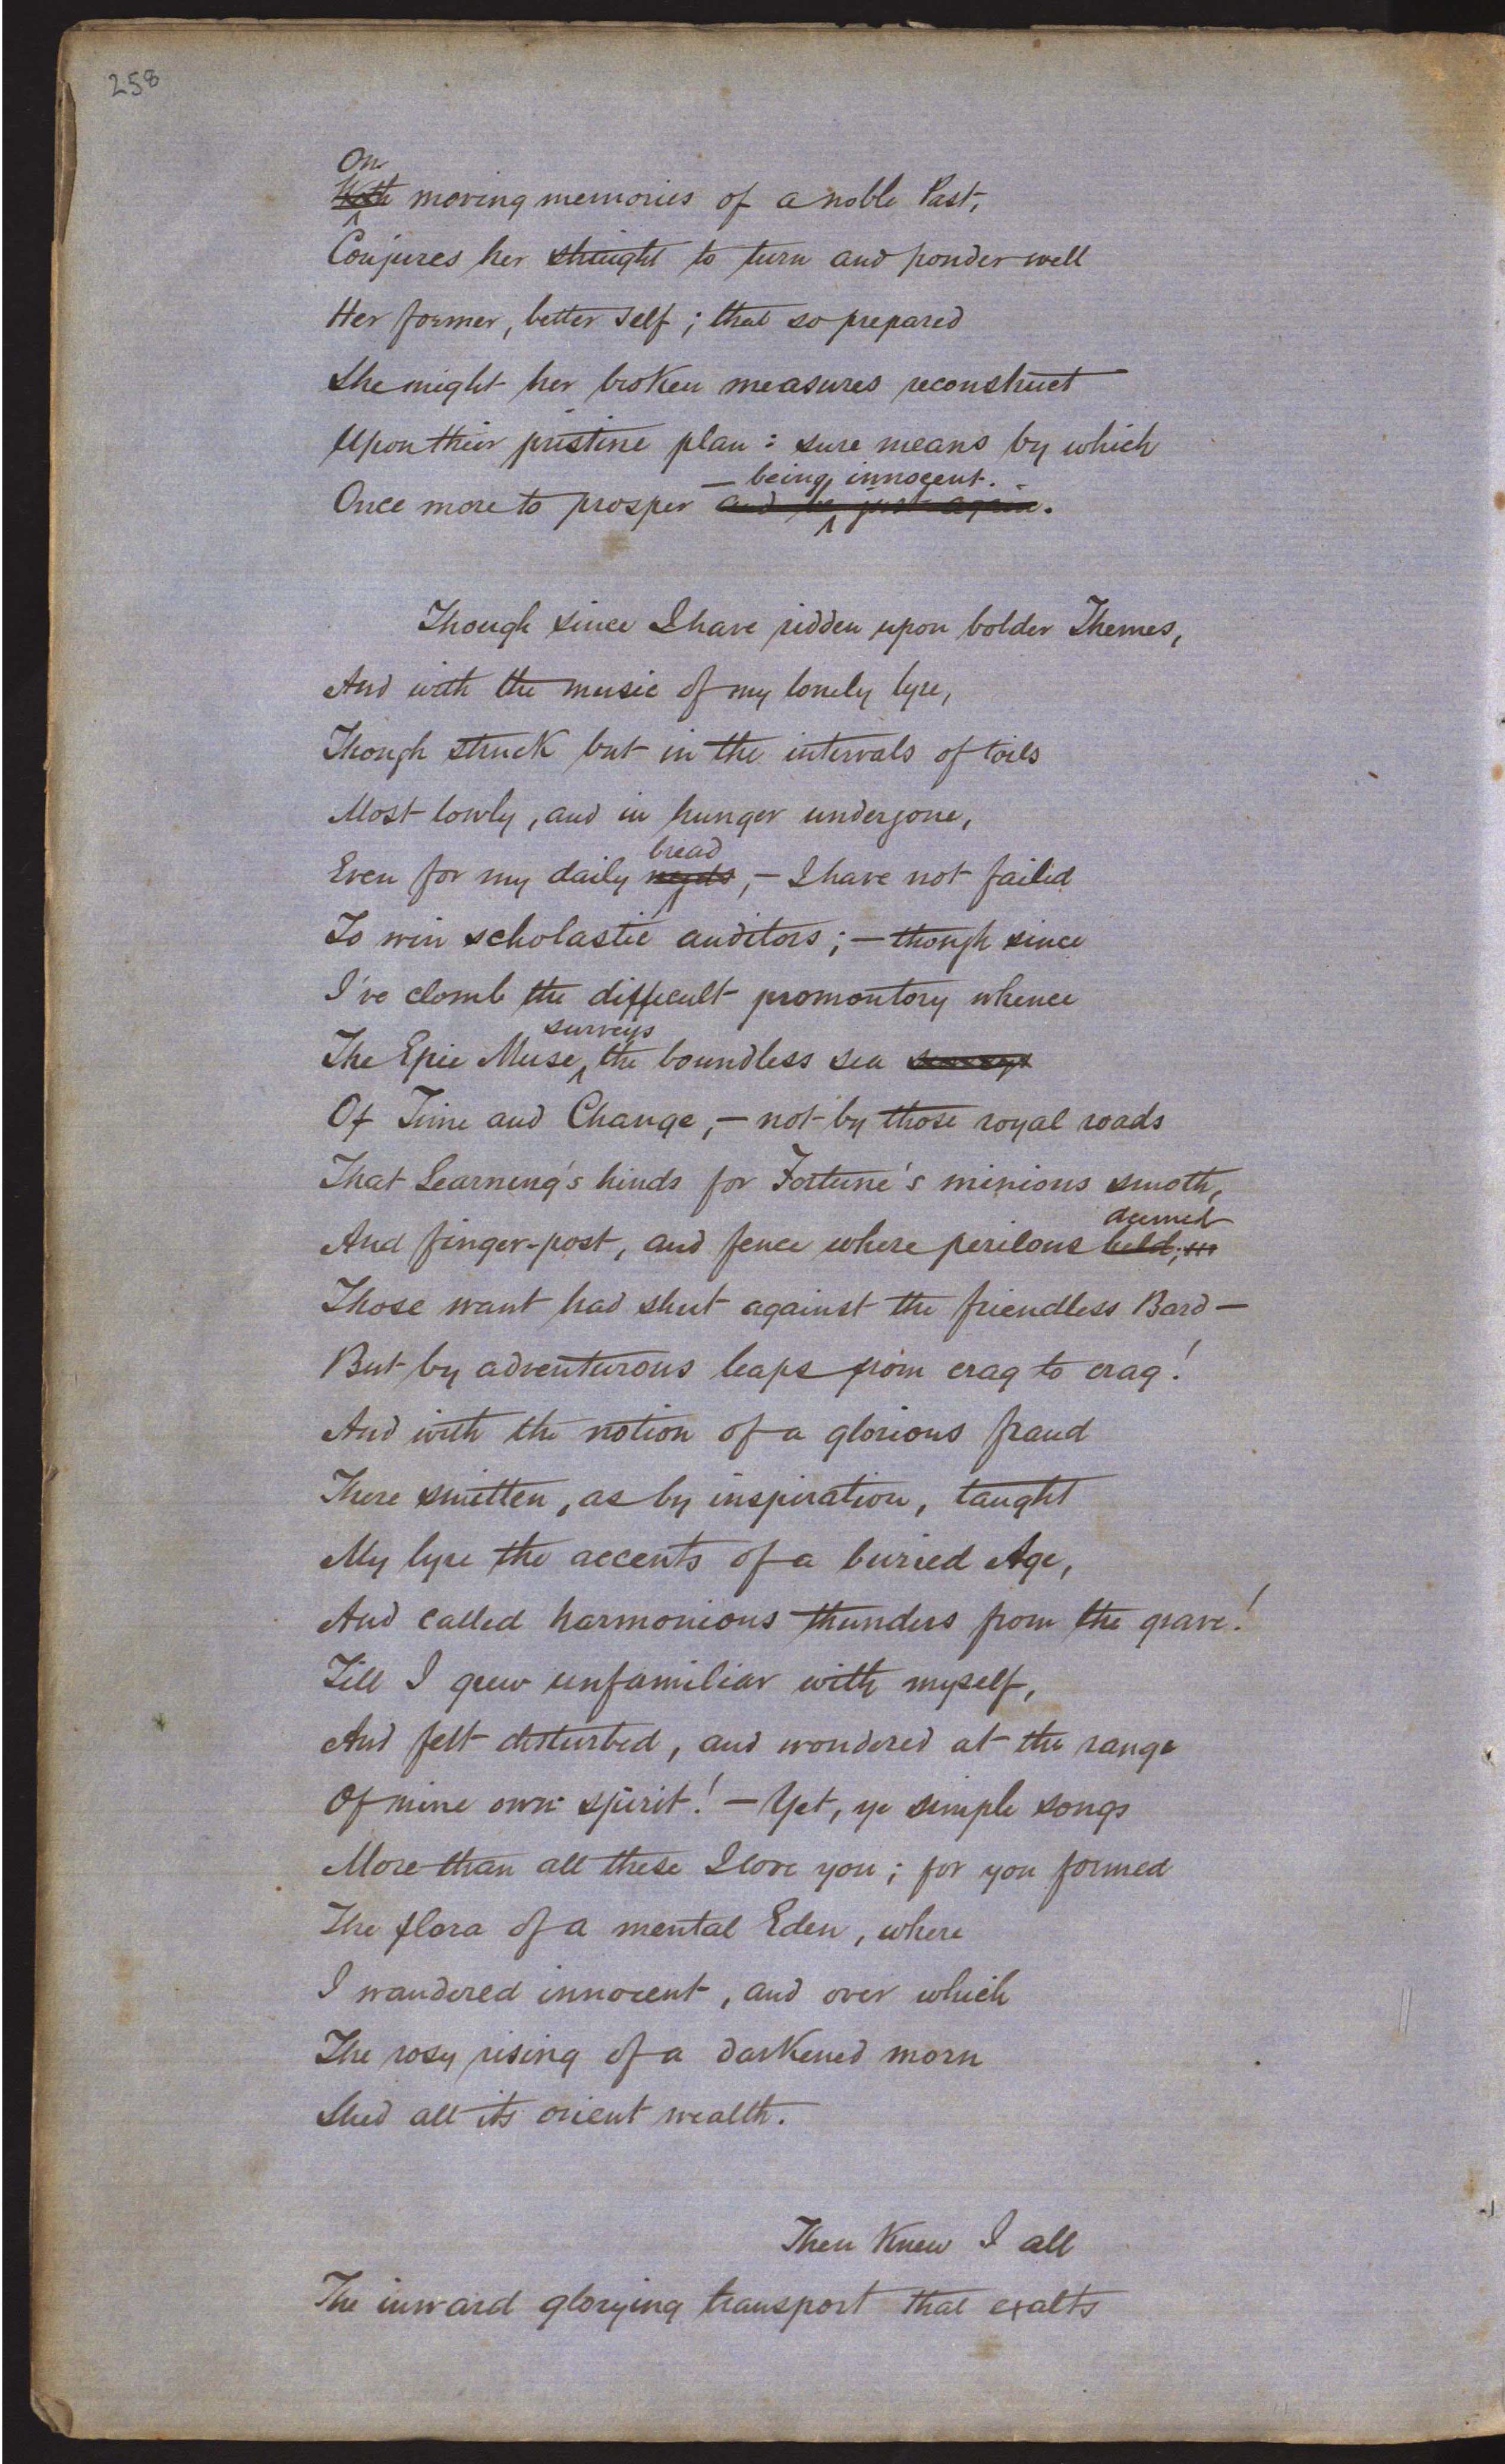 258
On
With moving memories of a noble Past,
Conjures her straight to turn and ponder well
Her former, better self; that so prepared
She might her broken measures reconstruct
Upon their pristine plan: sure means by which
— being innocent.
Once more to prosper and be just again.
Though since I have ridden upon bolder Themes,
And with the music of my lonely lyre,
Though struck but in the intervals of toils
Most lowly, and in hunger undergone,
bread
Even for my daily needs,— I have not failed
To win scholastic auditors;— though since
I've clomb the difficult promontory whence
surveys
The Epic Muse, the boundless sea surveys
Of Time and Change,— not by those royal roads
That Learning's hinds for Fortune's minions smoth,
deemed
And finger-post, and fence where perilous held;
Those want had shut against the friendless Bard—
But by adventurous leaps from crag to crag!
And with the notion of a glorious fraud
There smitten, as by inspiration, taught
My lyre the accents of a buried Age,
And called harmonious thunders from the grave!
Till I grew unfamiliar with myself,
And felt disturbed, and wondered at the range
Of mine own spirit!— Yet, ye simple songs
More than all these I love you; for you formed
The flora of a mental Eden, where
I wandered innocent, and over which
The rosy rising of a darkened morn
Shed all its orient wealth.
Then Knew I all
The inward glorying transport that exalts